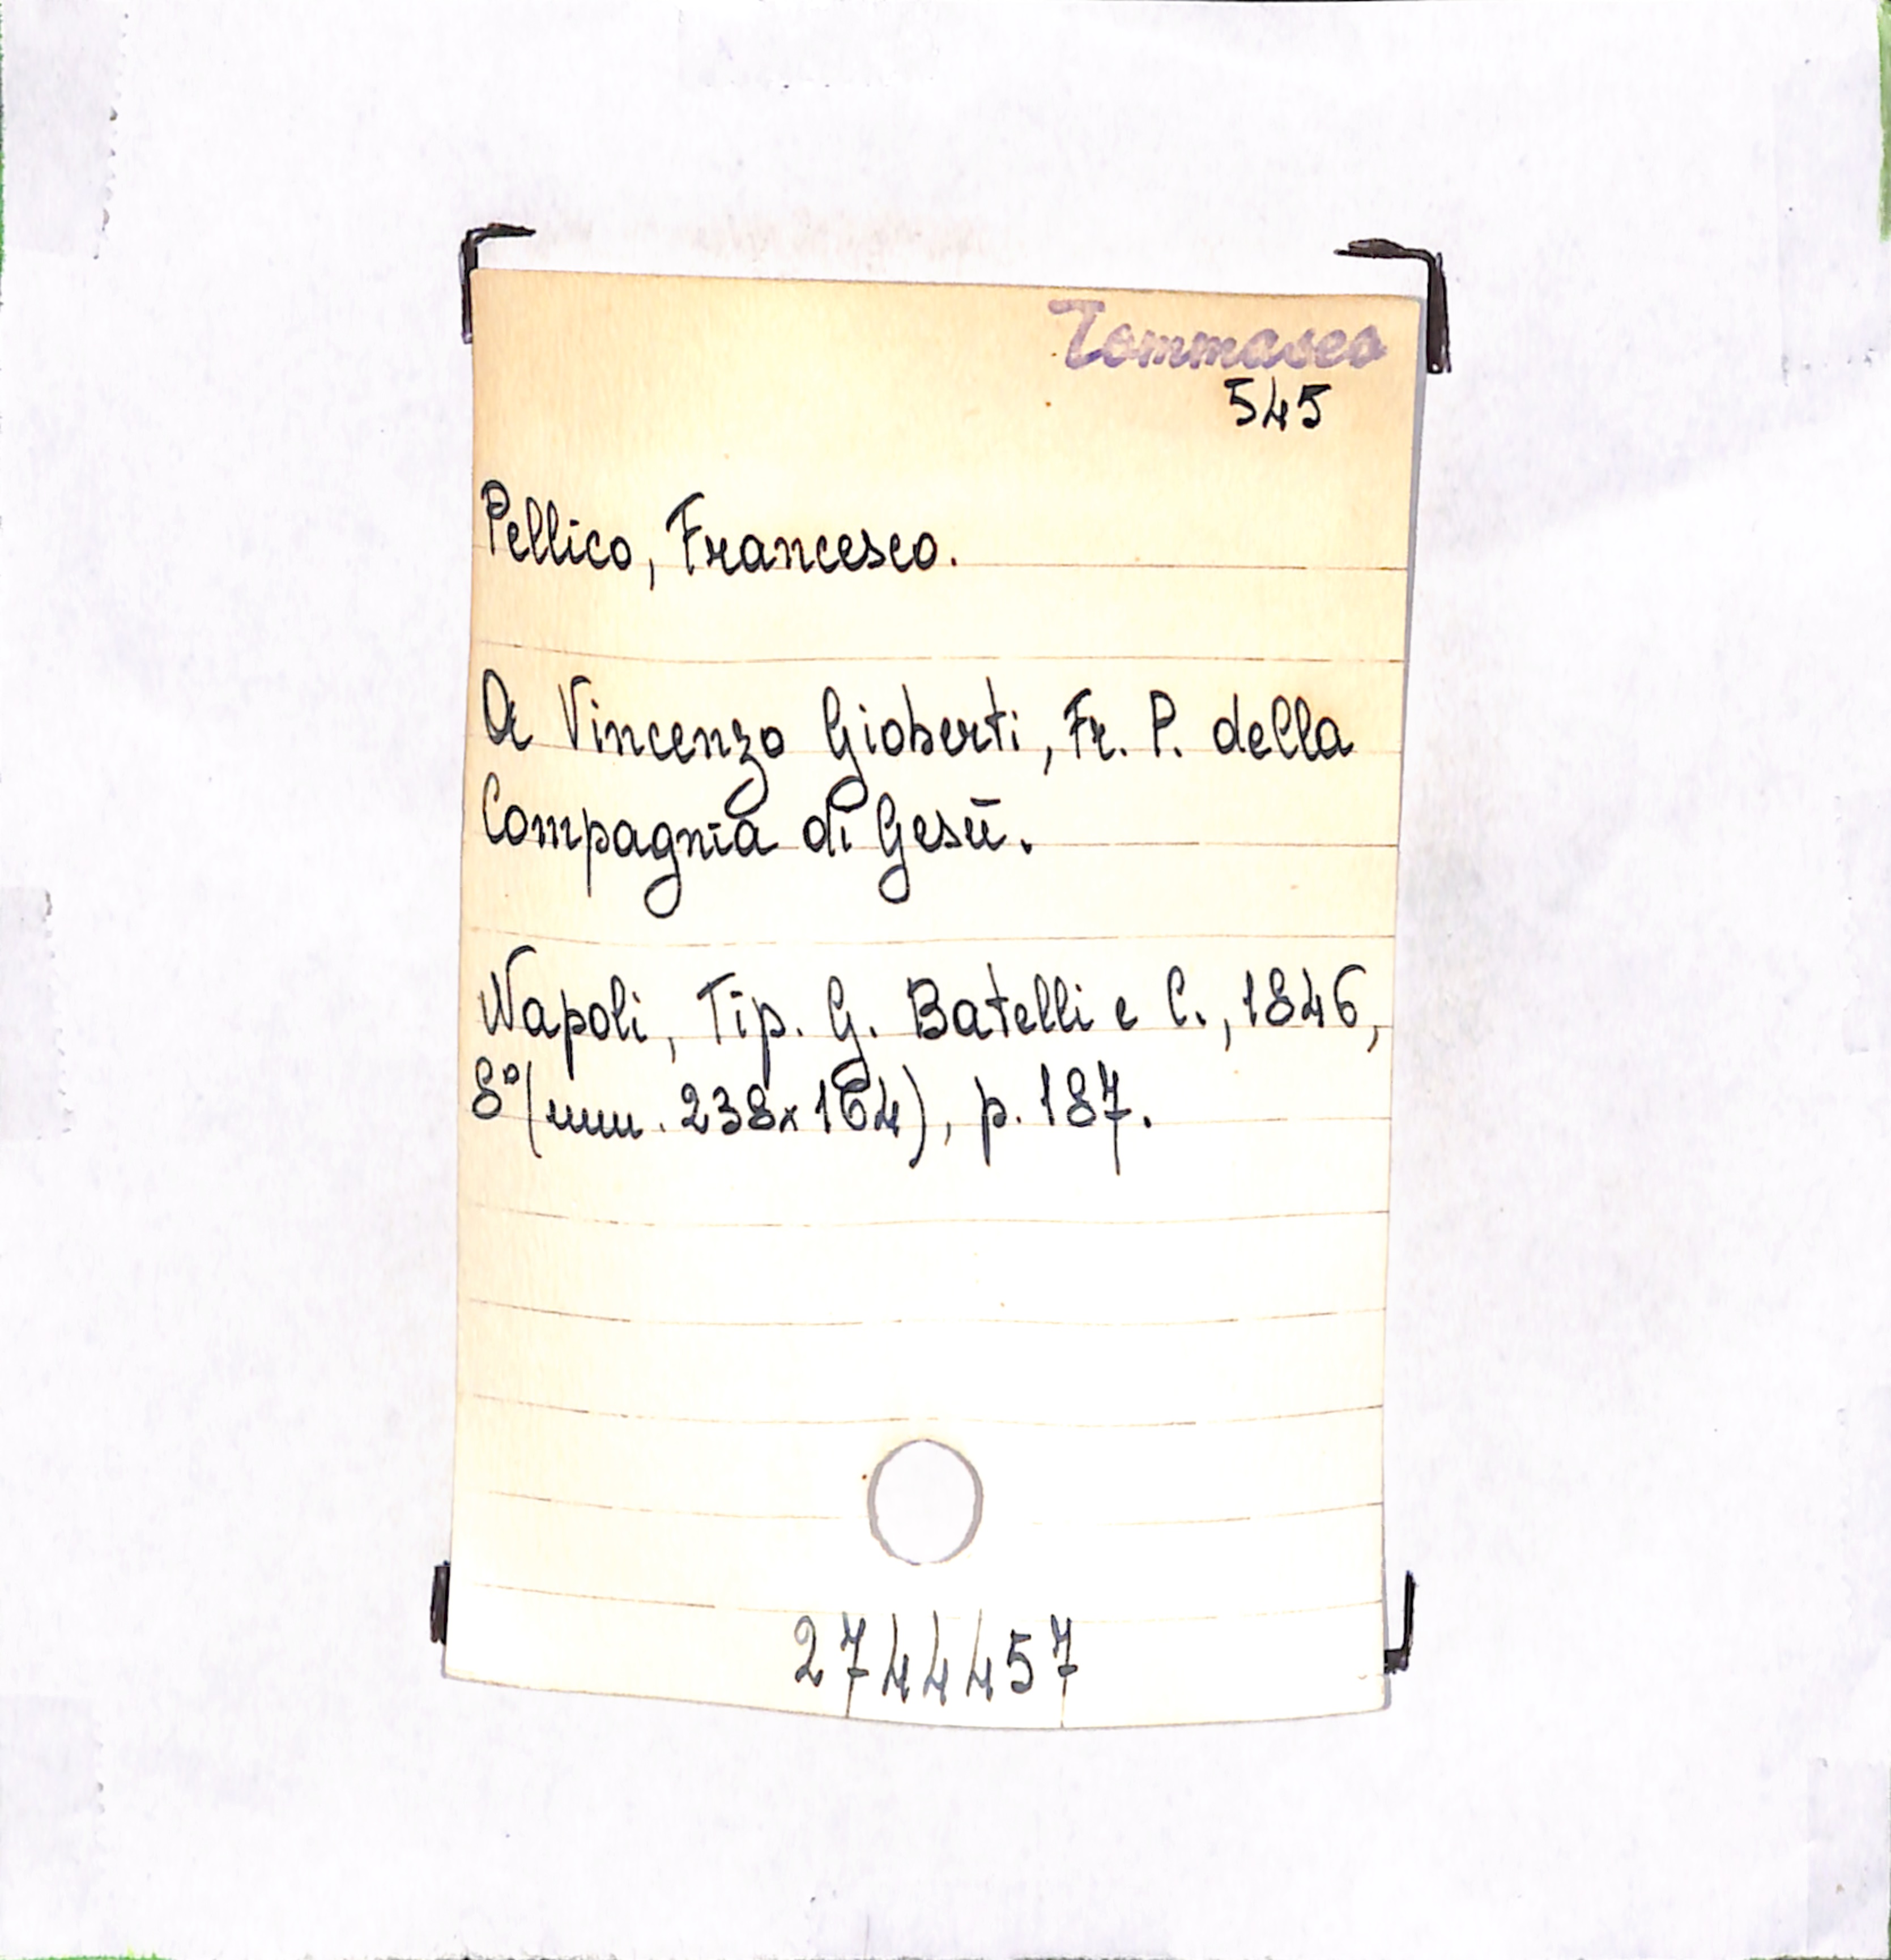 Tommaseo
545
Pellico, Francesco.
A Vincenzo Gioberti, Fr. P. della
Compagnia di Gesū.
Napoli, Tip. G. Batelli e C., 1846,
8°(mm. 238x164), p. 187.
2744457